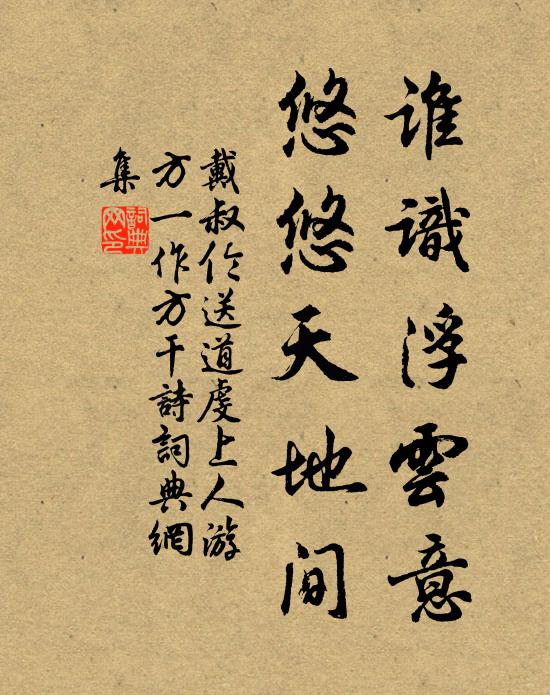 谁識浮雲意
悠悠天地间
戴叔伦送道虔上人游
方一作方干詩詞典網
集
詞典
网印